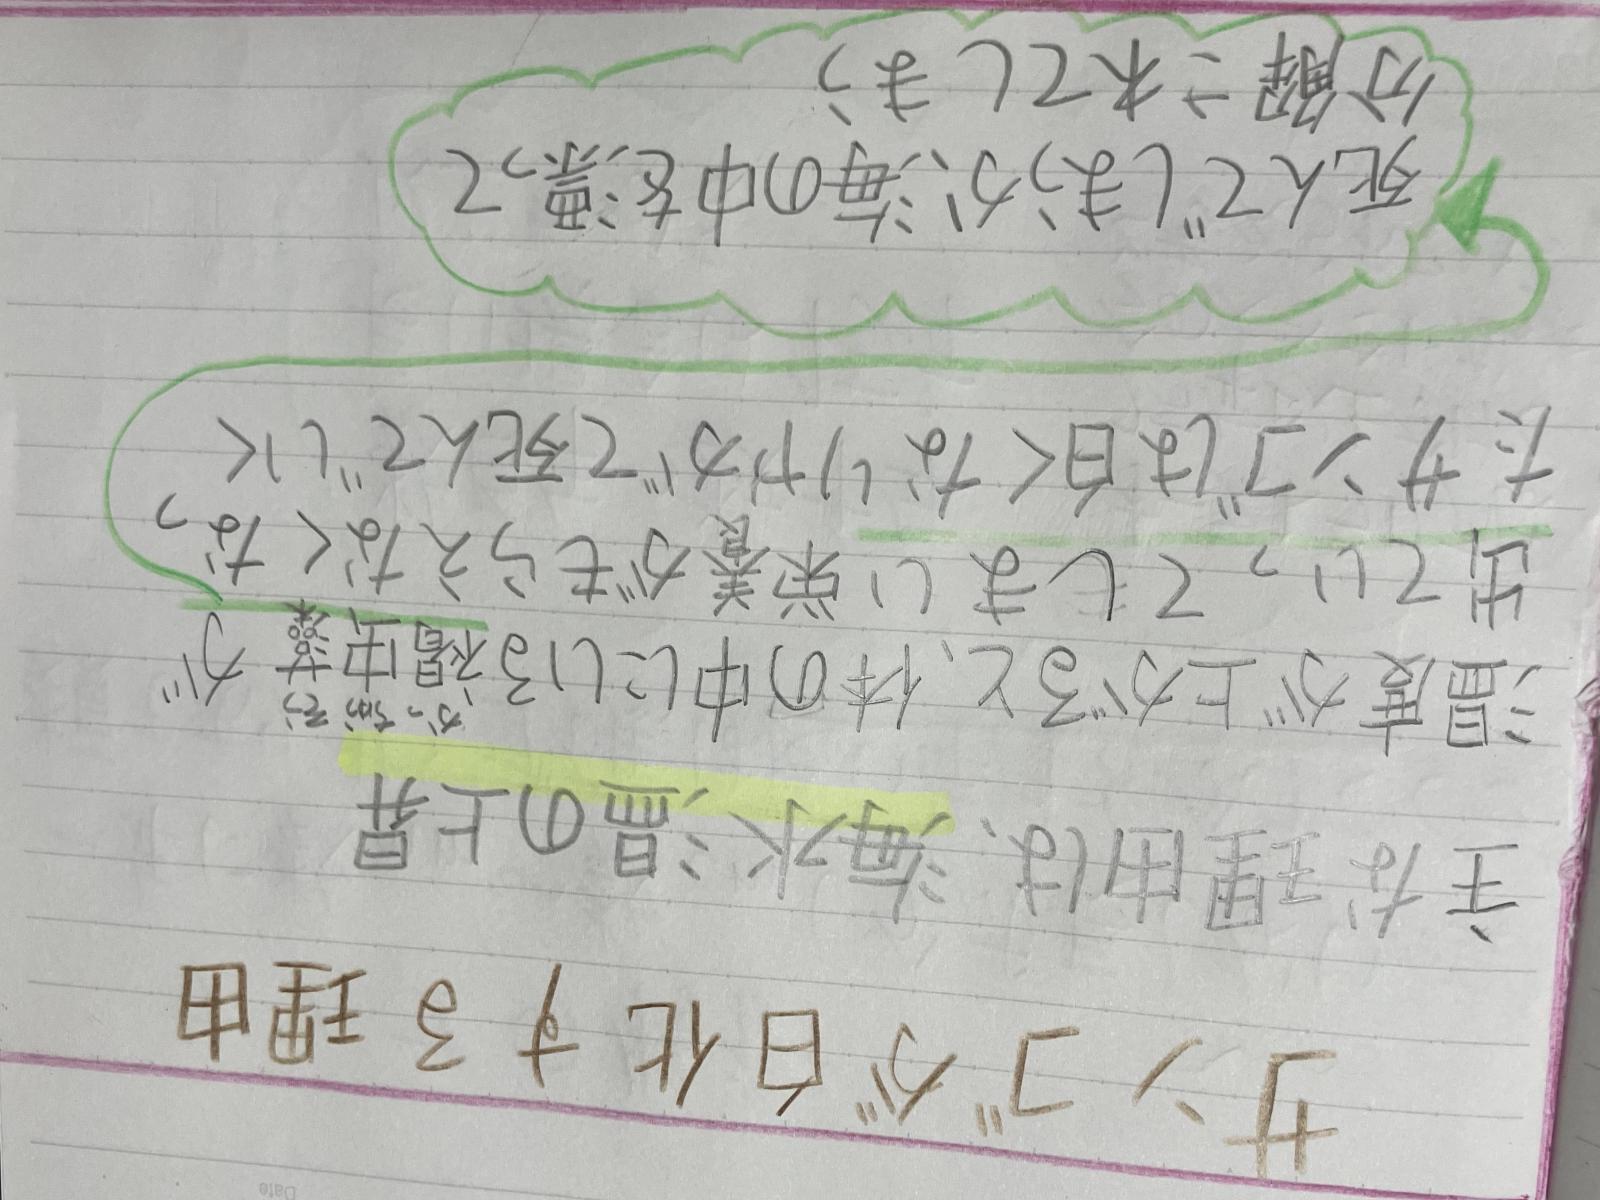 Date
サンゴが白化する理由
主な理由は、海水温の上昇
かっちゅうそう
温度が上がると、体の中にいる褐虫藻が
出ていってしまい栄養がもらえなくなっ
たサンゴは白くなりやがて死んでいく
死んでしまうか、海の中を漂って
分解されてしまう